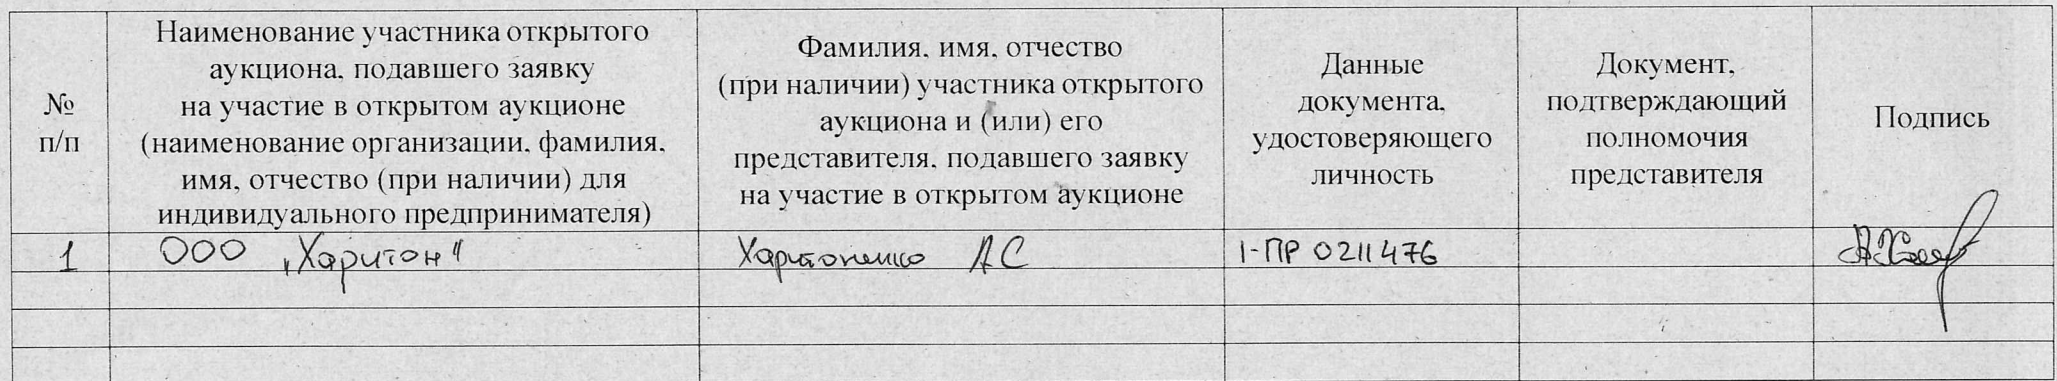 №
п/п
Наименование участника открытого
аукциона, подавшего заявку
на участие в открытом аукционе
(наименование организации, фамилия,
имя, отчество (при наличии) для
индивидуального предпринимателя)
Фамилия, имя, отчество
(при наличии) участника открытого
аукциона и (или) его
представителя, подавшего заявку
на участие в открытом аукционе
Данные
документа,
удостоверяющего
личность
Документ,
подтверждающий
полномочия
представителя
Подпись
1
ООО „Харитон"
Харитоненко АС
I-ПР 0211476